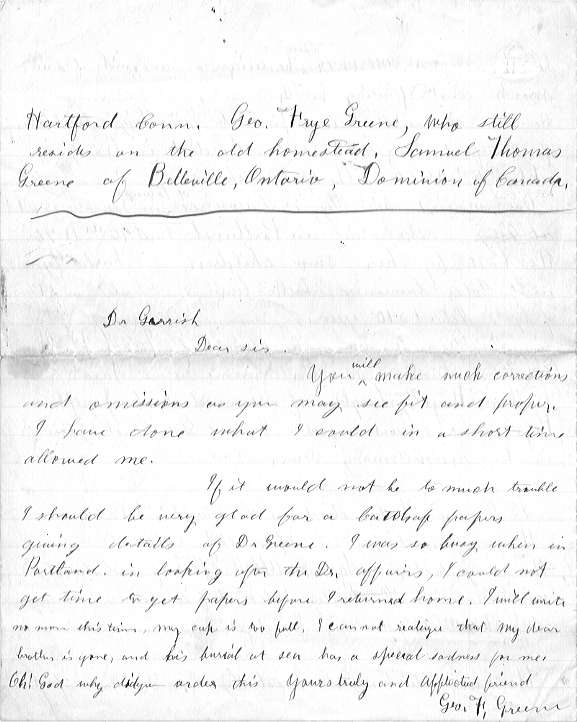 Hartford Conn. Geo. Frye Greene, who still
resides on the old homestead, Samuel Thomas
Greene of Belleville, Ontario, Dominion of Canada.
Dr Gerrish
Dear sir.
You will make such corrections
and omissions as you may see fit and proper.
I have done what I could in a short time
allowed me.
If it would not be to much trouble
I should be very glad for a papers
giving details of Dr Greene. I was so busy when in
Portland. in looking after the Drs affairs, I could not
get time to get papers before I returned home. I will write
no more this time, my cup is too full, I cannot realize that my dear
brother is gone, and his burial at sea has a special sadness for me
Oh! God why didye order this Yours truly and afflicted friend
Geo. F. Greene